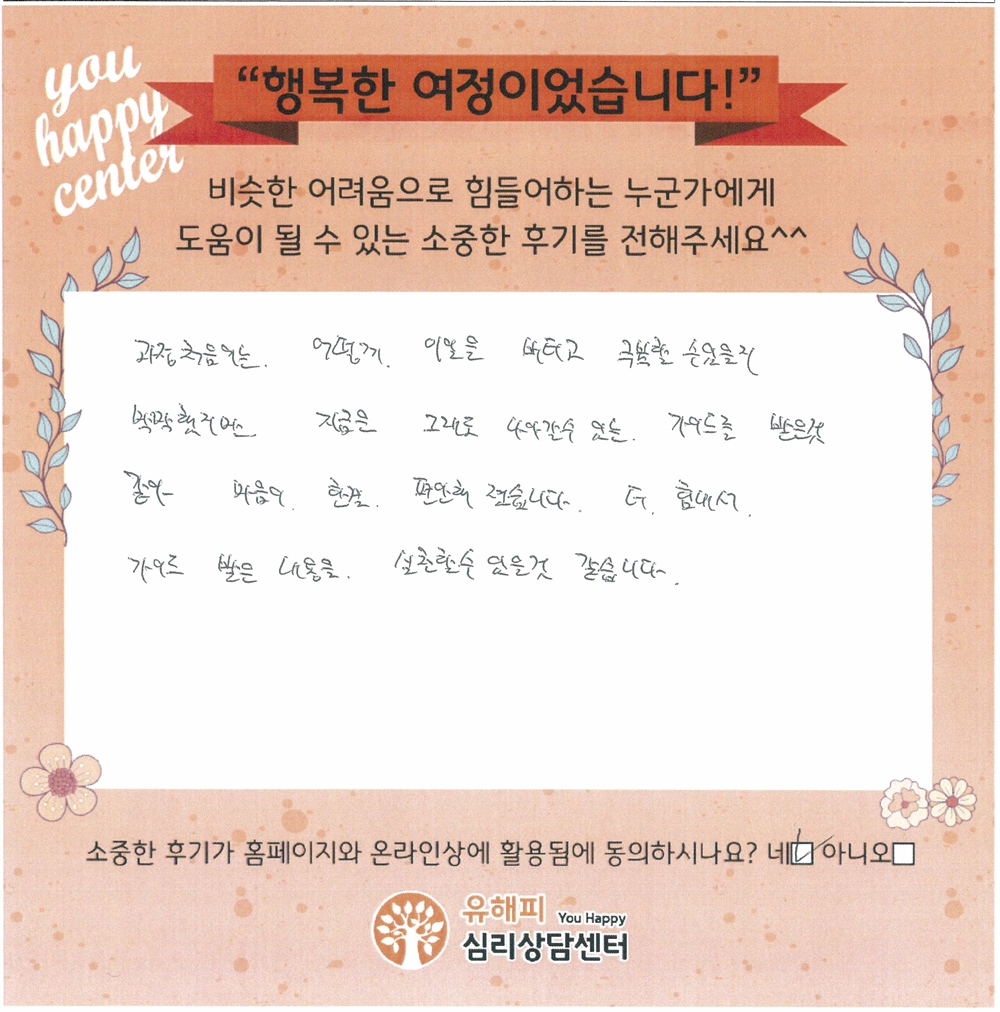 you
happy
center
“행복한 여정이었습니다!”
비슷한 어려움으로 힘들어하는 누군가에게
도움이 될 수 있는 소중한 후기를 전해주세요^^
과정 처음에는. 어떻게. 이일을 버티고 극복할 수있을지
막막했지만. 지금은 그래도 나아갈수 있는. 가이드를 받은것
같아 마음이. 한결. 편안해 졌습니다. 더. 힘내서.
가이드 받은 내용을. 실천할수 있을것 같습니다.
소중한 후기가 홈페이지와 온라인상에 활용됨에 동의하시나요? 네 아니오
유해피 You Happy
심리상담센터